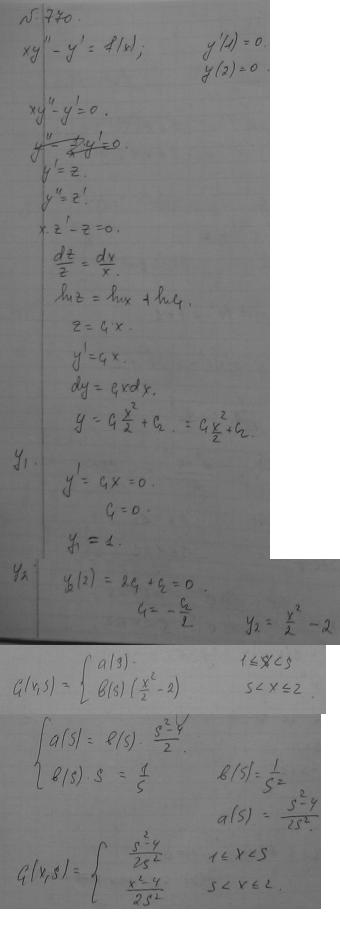 N: 770.
xy'' - y' = f(x);    y'(1) = 0.
y(2) = 0
xy'' - y' = 0.
y' = z.
y'' = z'.
x·z' - z = 0.
dz/z = dx/x.
ln z = ln x + ln C₁.
z = C₁ x.
y' = C₁x.
dy = C₁xdx.
y = C₁ x²/2 + C₂. = C₁ x²/2 + C₂.
y₁.
y' = C₁x = 0.
C₁ = 0.
y₁ = 1.
y₂
y₂(2) = 2C₁ + C₂ = 0.
C₁ = - C₂/2    y₂ = x²/2 - 2
G(x,s) = { a(s).    1 ≤ x < s
b(s) (x²/2 - 2)    s < x ≤ 2.
{ a(s) = b(s) · (s² - 4)/2.
b(s) · s = 1/s    b(s) = 1/s²
a(s) = (s² - 4)/2s².
G(x,s) = { (s² - 4)/2s²    1 ≤ x < s
(x² - 4)/2s²    s < x ≤ 2.